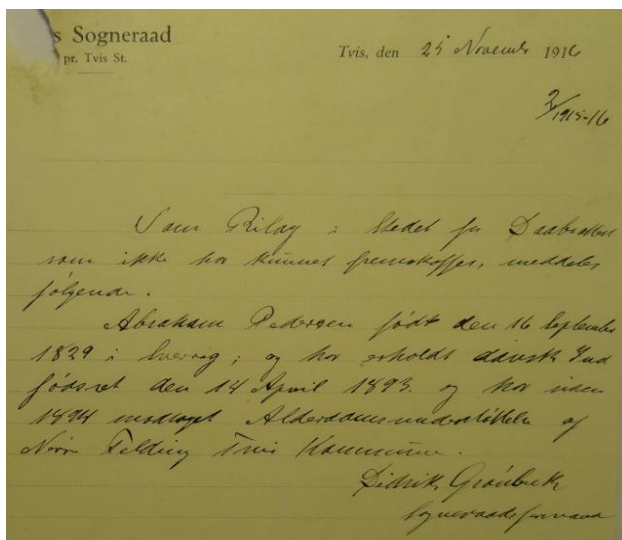 s Sogneraad
pr. Tvis St.
Tvis, den 25 November 1916
2/1915-16
Som Bilag i Stedet for Daabsattest
som ikke har kunnet fremskaffes, meddeles
følgende.
Abraham Pedersen født den 16 September
1829 i Sverrig, og har erholdt dansk Ind
fødsret den 14 April 1893. og har siden
1894 modtaget Alderdomsunderstøttelse af
Nørre Felding Tvis Kommune.
Didrik Grønbæk
Sogneraadsformand